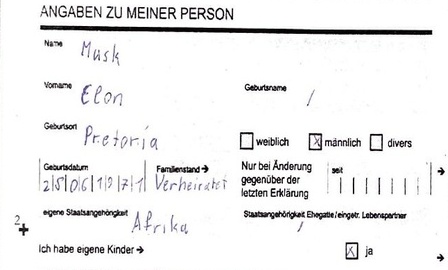 ANGABEN ZU MEINER PERSON
Name
Musk
Vorname
Elon
Geburtsname
/
Geburtsort
Pretoria
weiblich
x männlich
divers
Geburtsdatum
25061971
Familienstand →
Verheiratet
Nur bei Änderung
gegenüber der
letzten Erklärung →
seit
2
eigene Staatsangehörigkeit
Afrika
Staatsangehörigkeit Ehegatte/eingetr. Lebenspartner
/
Ich habe eigene Kinder →
x ja →